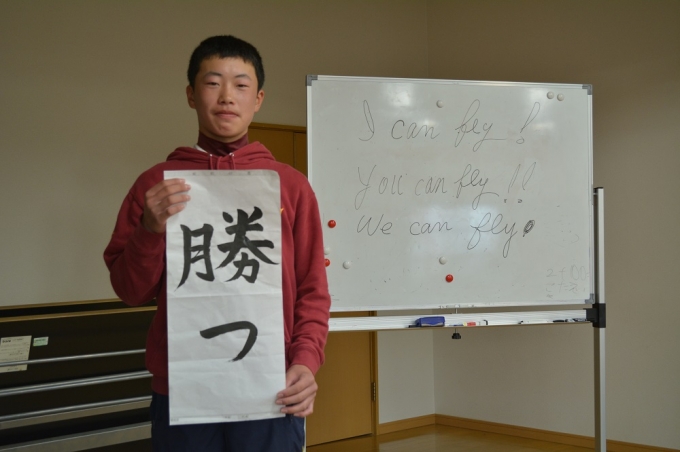 勝
つ
I can fly!
You can fly!!
We can fly.